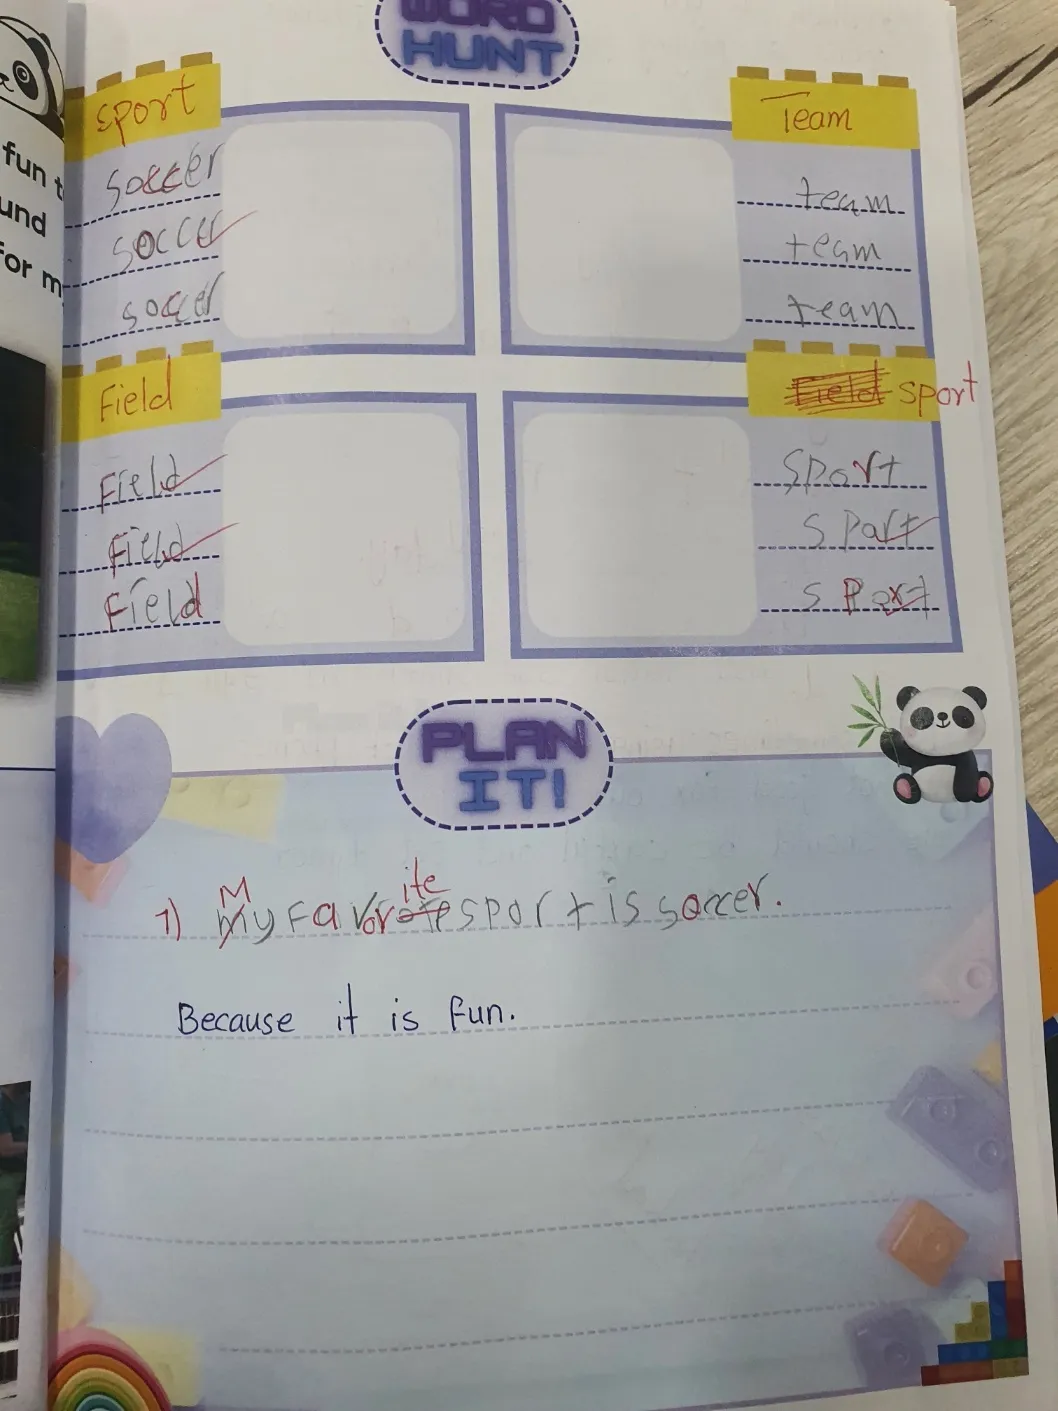 WORD
HUNT
sport
soccer
soccer
soccer
Team
team
team
team
Field
Field
Field
Field
Field sport
sport
sport
sport
fun t
und
for m
PLAN
IT!
1) My Favorite sport is soccer.
Because it is fun.